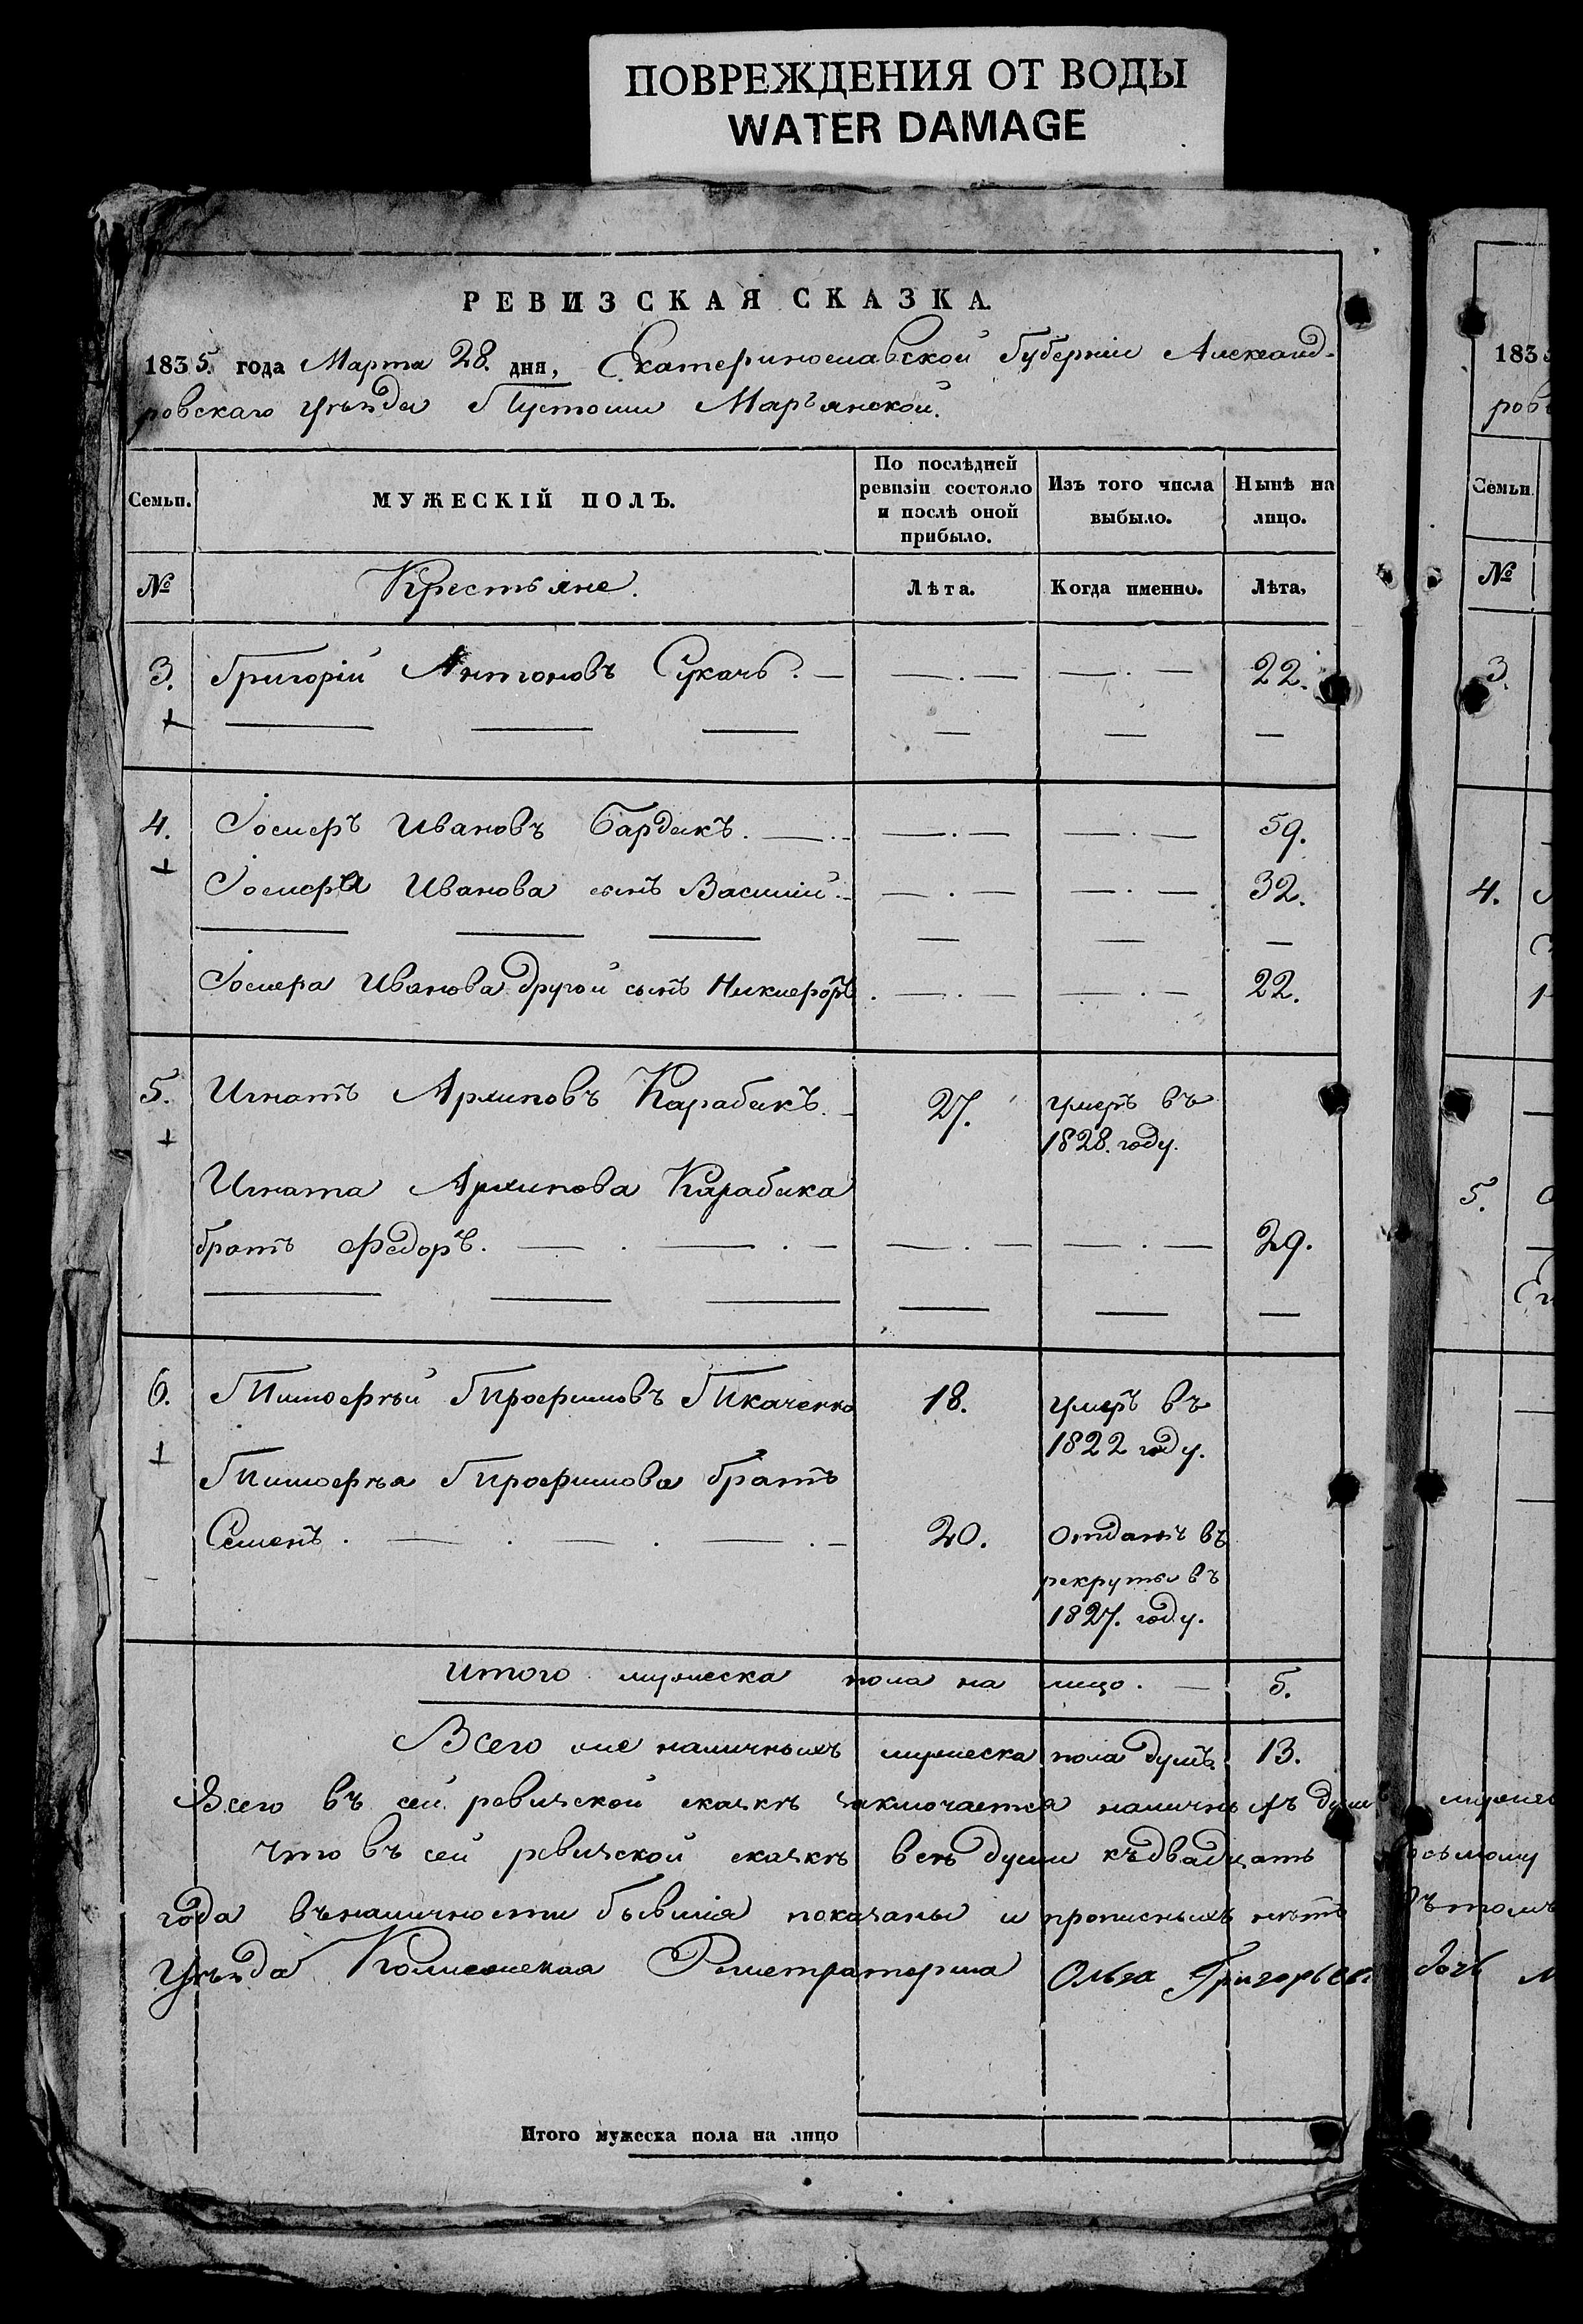 ПОВРЕЖДЕНИЯ ОТ ВОДЫ
WATER DAMAGE
РЕВИЗСКАЯ СКАЗКА.
1835. года Марта 28. дня, Екатеринославской Губернiи Александ-
ровскаго уѣзда Пустоши Марьянской.
Семьи. МУЖЕСКІЙ ПОЛЪ. По послѣдней ревизіи состояло и послѣ оной прибыло. Изъ того числа выбыло. Нынѣ на лицо.
№ Крестьяне. Лѣта. Когда именно. Лѣта,
3. Григорій Антоновъ Сукачь. — —.— —.— 22.
4. Іосифъ Ивановъ Бардакъ. —. —.— —.— 59.
Іосифа Иванова сынъ Василий. —.— —.— 32.
Іосифа Иванова другой сынъ Никифоръ. —.— —.— 22.
5. Игнатъ Архиповъ Карабакъ. 27. умеръ въ
1828. году.
Игната Архипова Карабака
братъ Федоръ. —.—.— —.— —.— 29.
6. Тимофѣй Трофимовъ Ткаченко 18. умеръ въ
1822 году.
Тимофѣя Трофимова братъ
Семенъ. —.—.—.— 20. отданъ въ
рекруты въ
1827. году.
Итого мужеска пола на лицо. — 5.
Всего же наличныхъ мужеска пола душъ. 13.
Всего въ сей ревизской сказкѣ заключается наличныхъ душъ мужес
Что въ сей ревизской сказкѣ всѣ души къ двадцать осьмому
года въ наличности бывшiя показаны и прописныхъ нѣтъ въ томъ
Уѣзда Колежская Регистраторша Ольга Григорьева дочь
Итого мужеска пола на лицо
183
ров
Семьи
№
3.
4.
5.